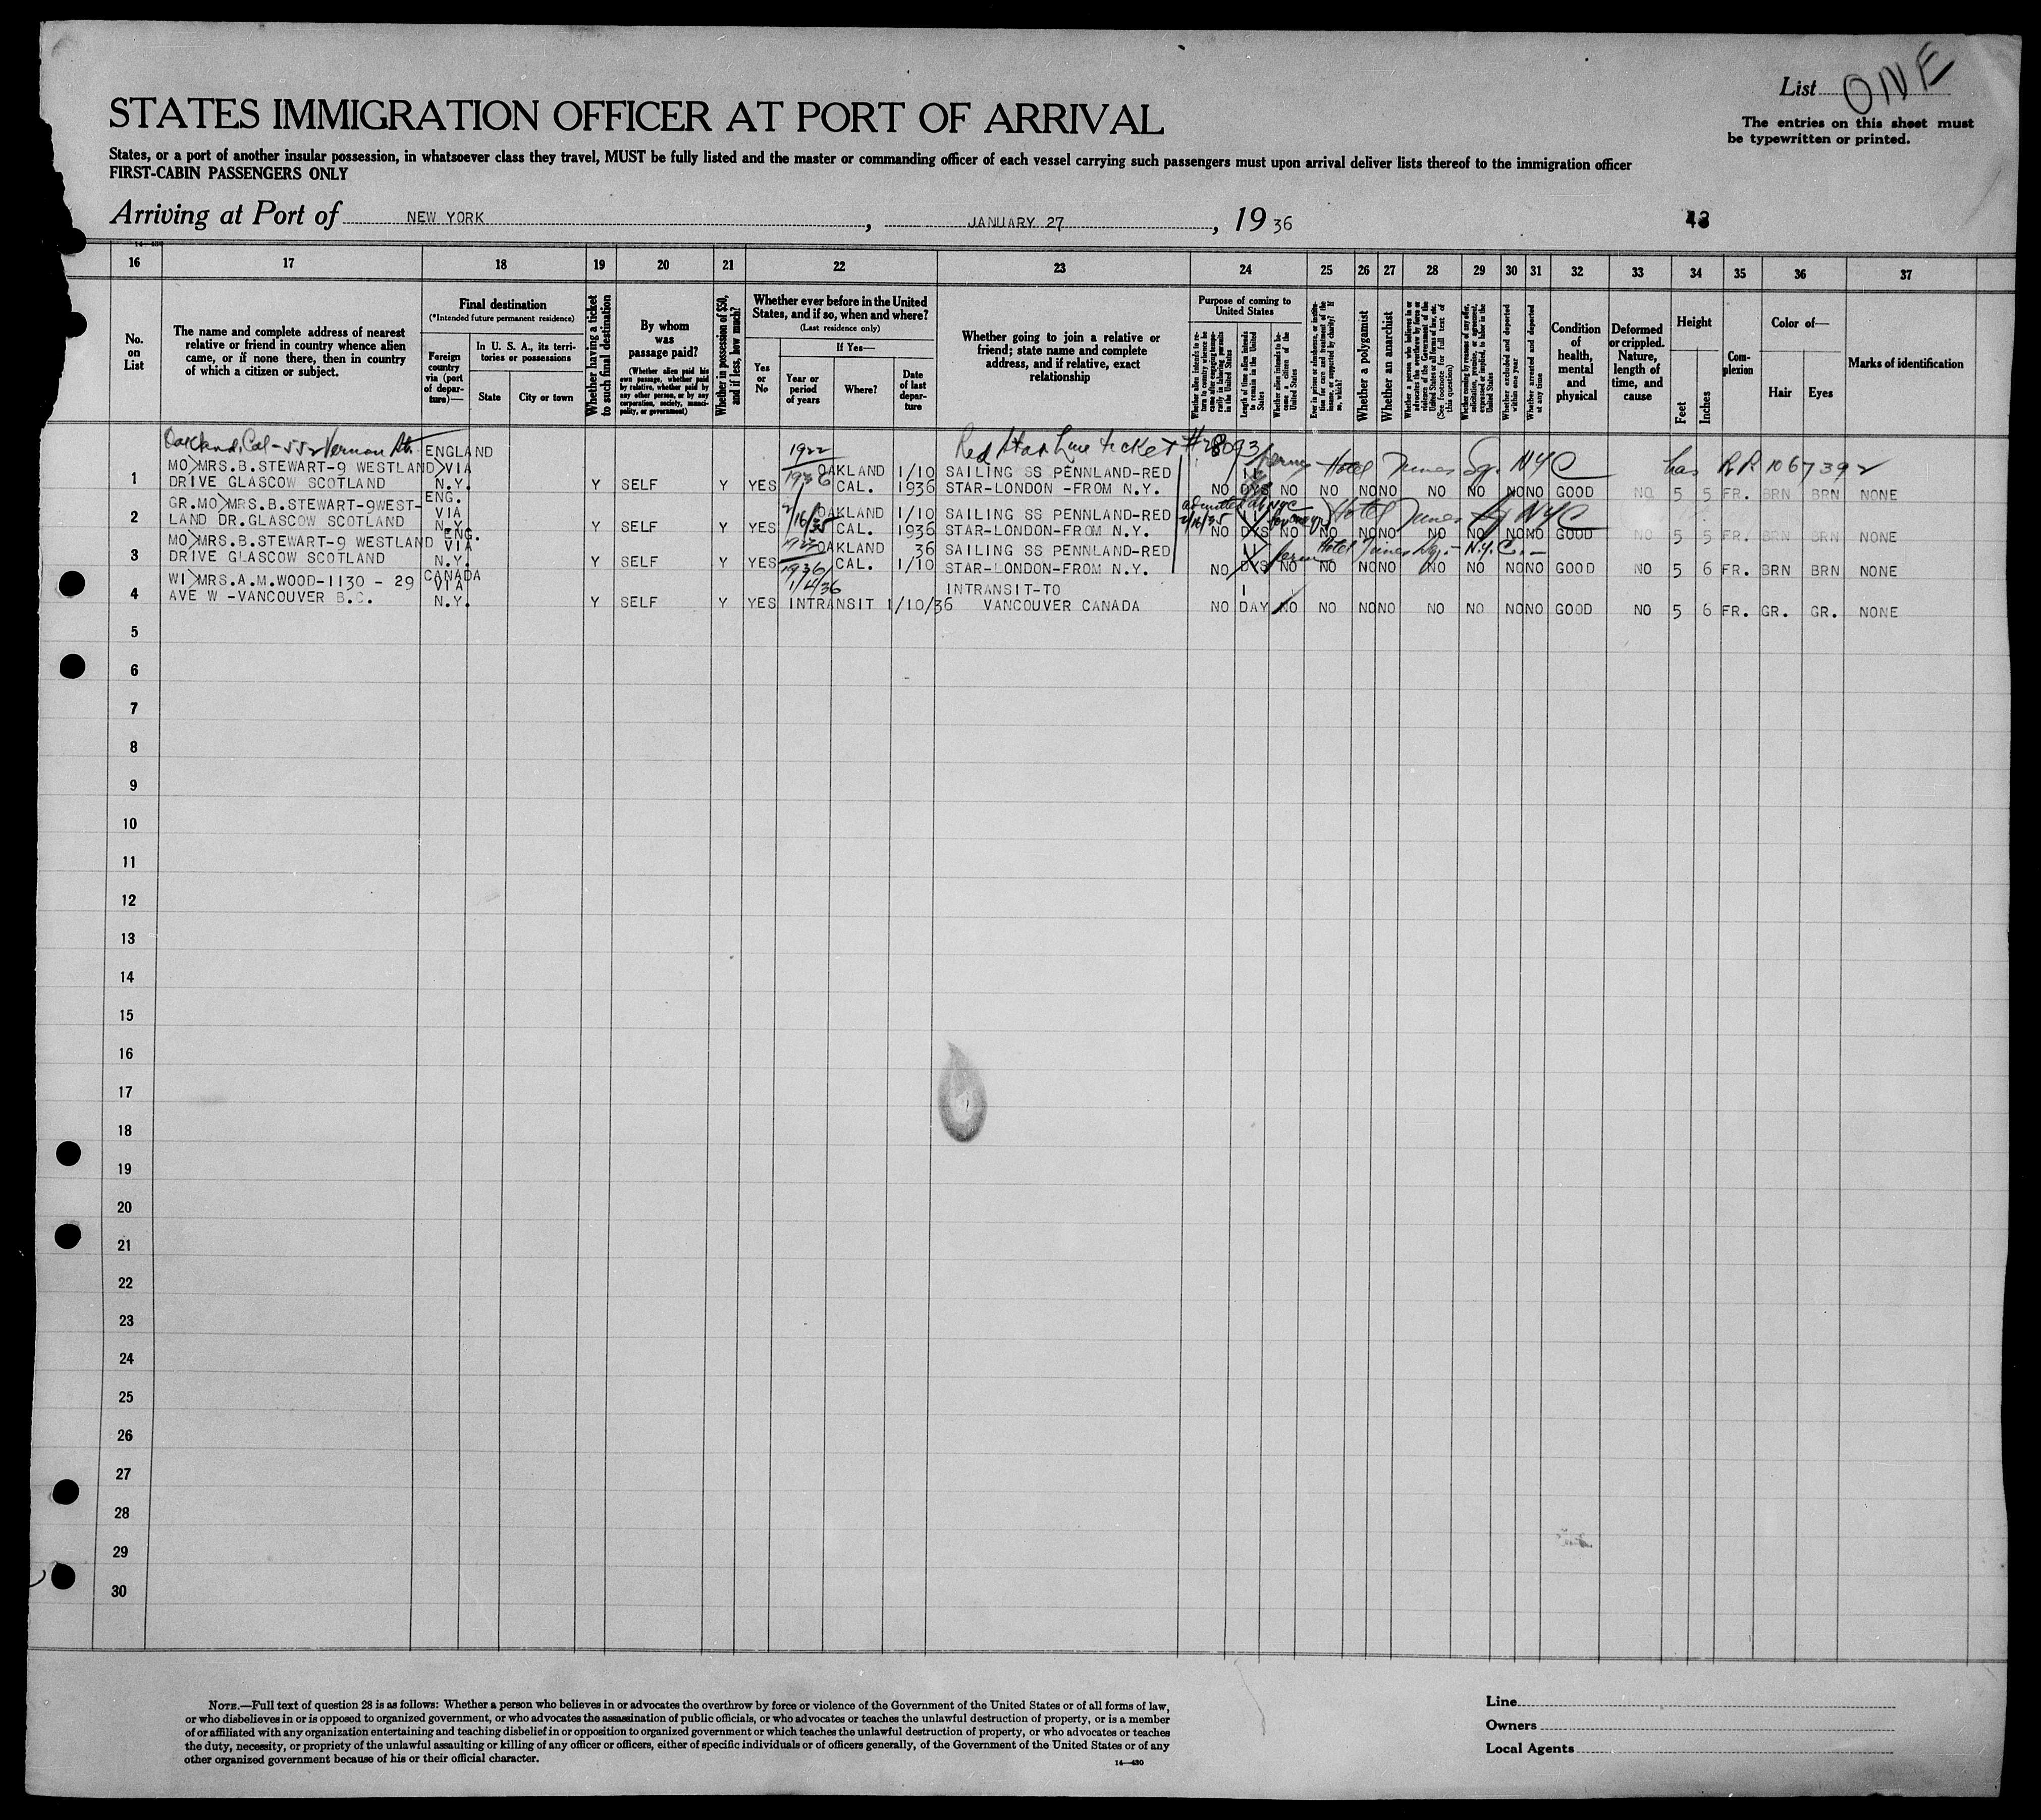 List ONE
The entries on this sheet must
be typewritten or printed.
STATES IMMIGRATION OFFICER AT PORT OF ARRIVAL
States, or a port of another insular possession, in whatsoever class they travel, MUST be fully listed and the master or commanding officer of each vessel carrying such passengers must upon arrival deliver lists thereof to the immigration officer
FIRST-CABIN PASSENGERS ONLY
Arriving at Port of NEW YORK, JANUARY 27, 19 36
16 17 18 19 20 21 22 23 24 25 26 27 28 29 30 31 32 33 34 35 36 37
No.
on
List
The name and complete address of nearest
relative or friend in country whence alien
came, or if none there, then in country
of which a citizen or subject.
Final destination
(*Intended future permanent residence)
Foreign
country
via (port
of depar-
ture)—
In U. S. A., its terri-
tories or possessions
State
City or town
Whether having a ticket
to such final destination
By whom
was
passage paid?
(Whether alien paid his
own passage, whether paid
by relative, whether paid by
any other person, or by any
corporation, society, munici-
pality, or government)
Whether in possession of $50,
and if less, how much?
Whether ever before in the United
States, and if so, when and where?
(Last residence only)
Yes
or
No
If Yes—
Year or
period
of years
Where?
Date
of last
depar-
ture
Whether going to join a relative or
friend; state name and complete
address, and if relative, exact
relationship
Purpose of coming to
United States
Length of time alien intends
to remain in the United
States
Whether a polygamist
Whether an anarchist
Whether excluded and deported
within one year
Whether arrested and deported
at any time
Condition
of
health,
mental
and
physical
Deformed
or crippled.
Nature,
length of
time, and
cause
Height
Feet
Inches
Com-
plexion
Color of—
Hair
Eyes
Marks of identification
Oakland, Cal - 552 Vernon St. ENGLAND 1922 Red Star Line ticket
MO>MRS.B.STEWART-9 WESTLAND>VIA OAKLAND 1/10 SAILING SS PENNLAND-RED Hotel Times Sq. NYC has
1 DRIVE GLASCOW SCOTLAND N.Y. Y SELF Y YES 1936 CAL. 1936 STAR-LONDON -FROM N.Y. NO DYS NO NO NO NO NO NO NO NO GOOD NO 5 5 FR. BRN BRN NONE
GR.MO>MRS.B.STEWART-9WEST- ENG. VIA OAKLAND 1/10 SAILING SS PENNLAND-RED Hotel Times Sq NYC
2 LAND DR.GLASCOW SCOTLAND N.Y. Y SELF Y YES 2/16/35 CAL. 1936 STAR-LONDON-FROM N.Y. NO DYS NO NO NO NO NO NO NO NO GOOD NO 5 5 FR. BRN BRN NONE
MO>MRS.B.STEWART-9 WESTLAND ENG. VIA OAKLAND 36 SAILING SS PENNLAND-RED Hotel Times Sq. - N.Y.C. -
3 DRIVE GLASCOW SCOTLAND N.Y. Y SELF Y YES 1936 CAL. 1/10 STAR-LONDON-FROM N.Y. NO DYS NO NO NO NO NO NO NO NO GOOD NO 5 6 FR. BRN BRN NONE
WI>MRS.A.M.WOOD-1130 - 29 CANADA VIA 1/4/36 INTRANSIT-TO 1
4 AVE W -VANCOUVER B.C. N.Y. Y SELF Y YES INTRANSIT 1/10/36 VANCOUVER CANADA NO DAY NO NO NO NO NO NO NO NO GOOD NO 5 6 FR. GR. GR. NONE
5
6
7
8
9
10
11
12
13
14
15
16
17
18
19
20
21
22
23
24
25
26
27
28
29
30
NOTE.—Full text of question 28 is as follows: Whether a person who believes in or advocates the overthrow by force or violence of the Government of the United States or of all forms of law,
or who disbelieves in or is opposed to organized government, or who advocates the assassination of public officials, or who advocates or teaches the unlawful destruction of property, or is a member
of or affiliated with any organization entertaining and teaching disbelief in or opposition to organized government or which teaches the unlawful destruction of property, or who advocates or teaches
the duty, necessity, or propriety of the unlawful assaulting or killing of any officer or officers, either of specific individuals or of officers generally, of the Government of the United States or of any
other organized government because of his or their official character.
14—430
Line
Owners
Local Agents